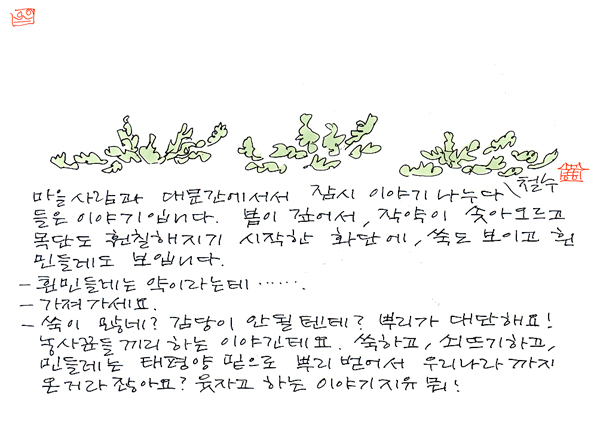 마을 사람과 대문간에서서 잠시 이야기 나누다 철수
들은 이야기입니다. 봄이 깊어서, 작약이 솟아오르고
목단도 훤칠해지기 시작한 화단에, 쑥도 보이고 흰
민들레도 보입니다.
- 흰민들레는 약이라는데…….
- 가져가세요.
- 쑥이 많네? 감당이 안될텐데? 뿌리가 대단해요!
농사꾼들끼리 하는 이야긴데요. 쑥하고, 쇠뜨기하고,
민들레는 태평양 밑으로 뿌리 벋어서 우리나라까지
온거라잖아요? 웃자고 하는 이야기지유 뭐!